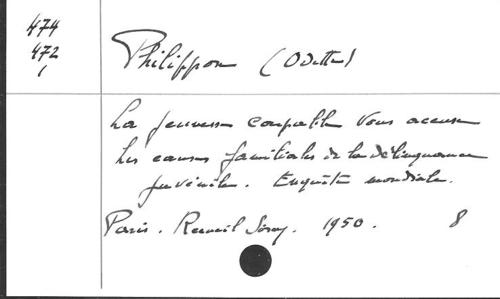 474
472
/
Philippon (Odette)
La jeunesse coupable vous accuse
Les causes familiales de la délinquance
juvénile. Enquête mondiale.
Paris. Recueil Sirey. 1950. 8